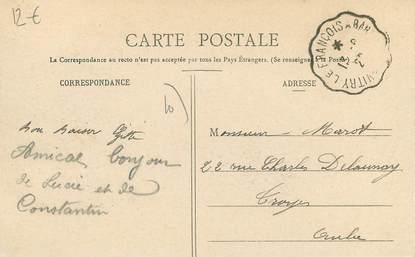 12-€
CARTE POSTALE
La Correspondance au recto n'est pas acceptée par tous les Pays Étrangers. (Se renseigner à la Poste)
CORRESPONDANCE
ADRESSE
VITRY LE FRANÇOIS
10
Monsieur Marot
22 rue Charles Delaunay
Troyes
Aube
Bon baiser
Amical bonjour
de Lucie et de
Constantin